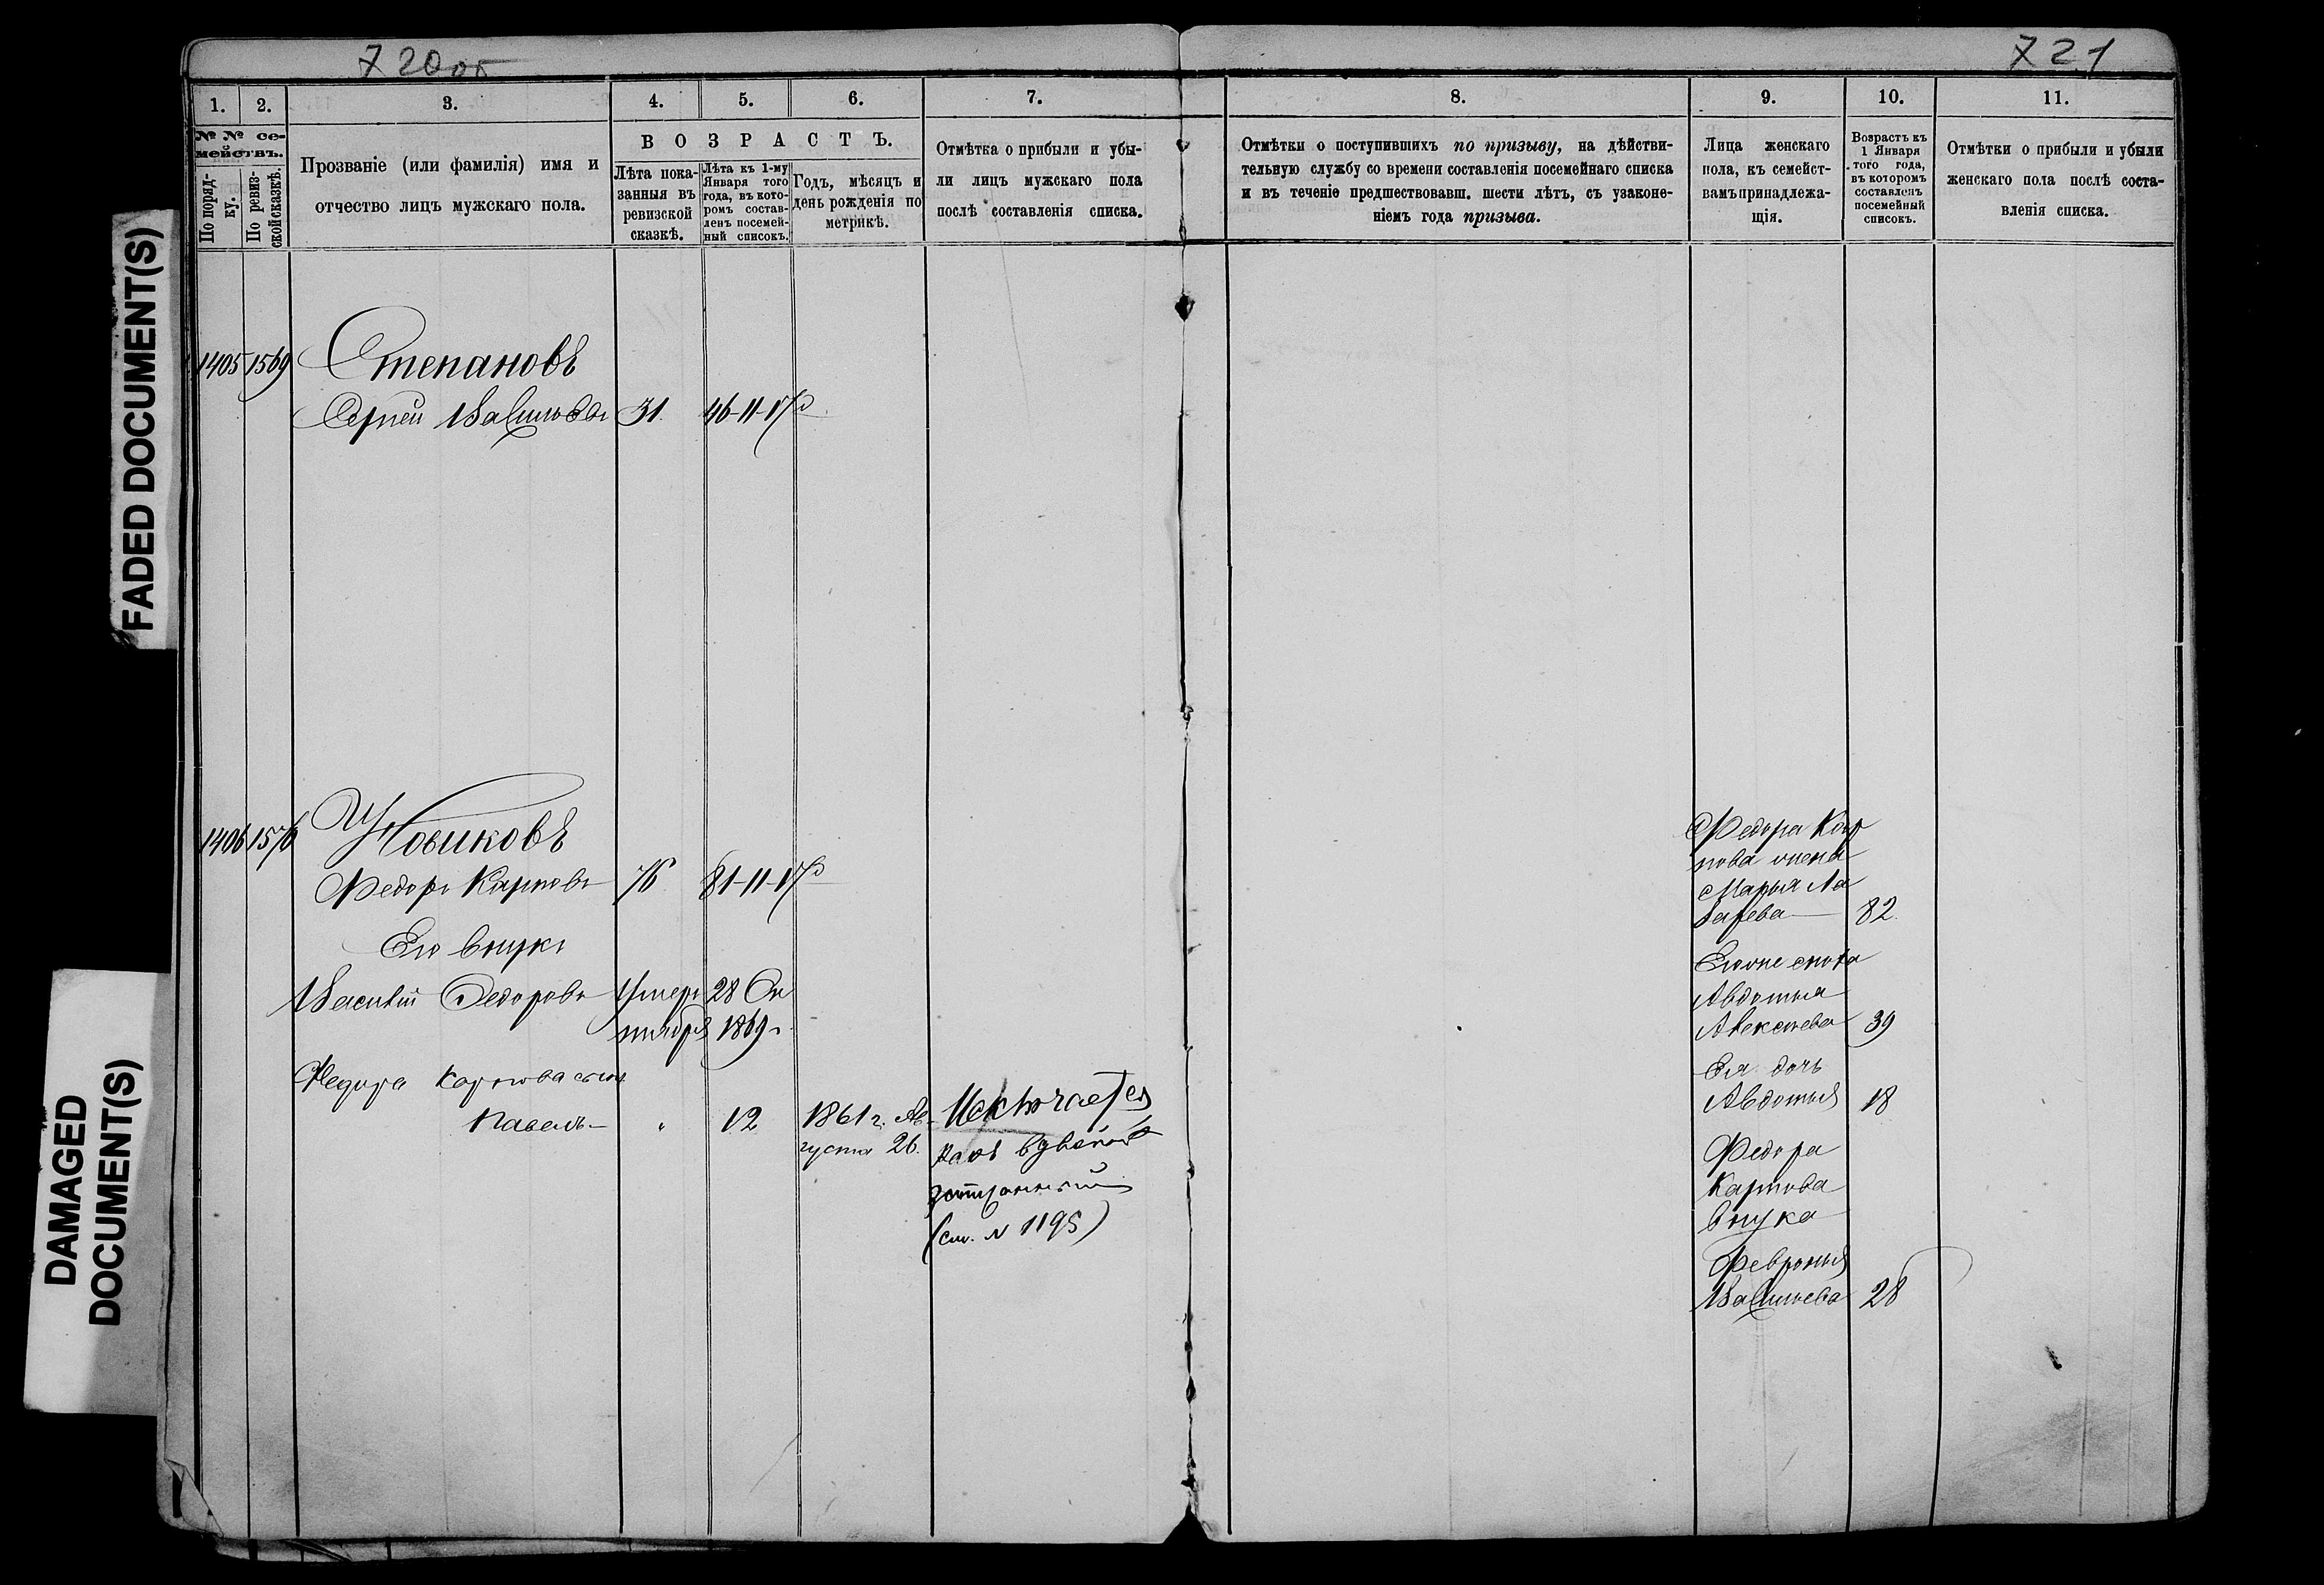 720 об
721
FADED DOCUMENT(S)
DAMAGED
DOCUMENT(S)
1. 2. 3. 4. 5. 6. 7. 8. 9. 10. 11.
№ № се-
мействъ.
По поряд-
ку.
По ревиз-
ской сказкѣ.
Прозваніе (или фамилія) имя и
отчество лицъ мужскаго пола.
ВОЗРАСТЪ.
Лѣта пока-
занныя въ
ревизской
сказкѣ.
Лѣта къ 1-му
Января того
года, въ кото-
ромъ состав-
ленъ посемей-
ный списокъ.
Годъ, мѣсяцъ и
день рожденія по
метрикѣ.
Отмѣтка о прибыли и убы-
ли лицъ мужскаго пола
послѣ составленія списка.
Отмѣтки о поступившихъ по призыву, на дѣйстви-
тельную службу со времени составленія посемейнаго списка
и въ теченіе предшествовавш. шести лѣтъ, съ узаконе-
ніемъ года призыва.
Лица женскаго
пола, къ семейст-
вамъ принадлежа-
щія.
Возрастъ къ
1 Января
того года,
въ которомъ
составленъ
посемейный
списокъ.
Отмѣтки о прибыли и убыли
женскаго пола послѣ соста-
вленія списка.
1405 1569 Степановъ
Сергѣй Васильевъ 31. 46-11-17
1406 1570 Новиковъ
Федоръ Карповъ 76 81-11-17
Его внукъ
Василій Федоровъ Умеръ 28 Ок
тября 1869 г.
Федора Карпова сынъ
Павелъ " 12 1861 г. Ав-
густа 26.
Исключается
какъ
(см. № 1195)
Федора Кар
пова жена
Марья Ла
зарева 82.
снока
Авдотья
Алексеева 39
Ея дочь
Авдотья 18
Федора
Карпова
внука
Февронья
Васильева 28